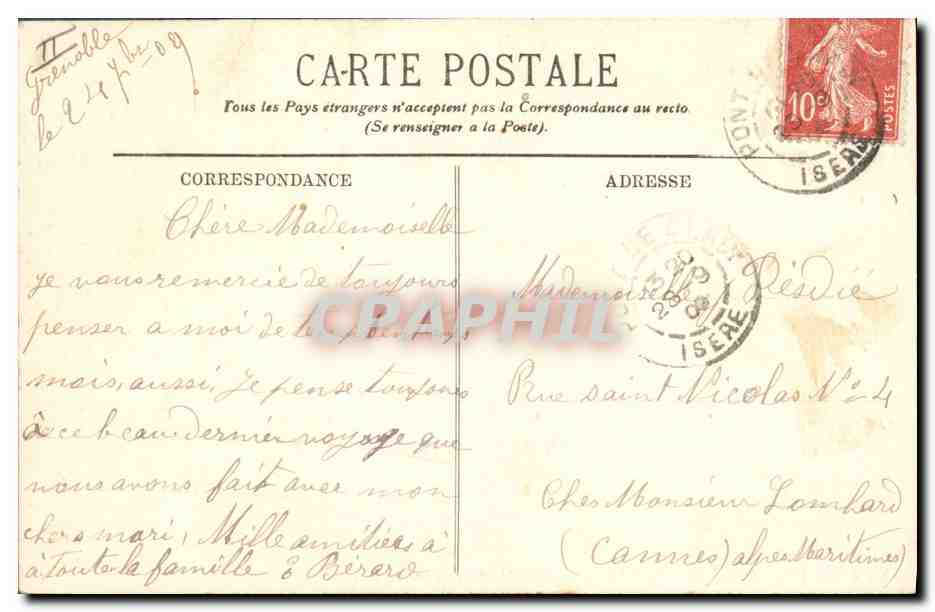 II
Grenoble
le 24 7bre 09
CARTE POSTALE
Tous les Pays etrangers n'acceptent pas la Correspondance au recto.
(Se renseigner a la Poste).
10c
POSTES
PONT
ISERE
CORRESPONDANCE
ADRESSE
Chère Mademoiselle
Je vous remercie de toujours
penser a moi de temps en temps
mais, aussi, je pense toujours
à ce beau dernier voyage que
nous avons fait avec mon
chers mari, Mille amitiées à
à toute la famille Bérard
13 20
28 9
09
ISERE
CPAPHIL
Mademoiselle Désdié
Rue saint Nicolas No 4
Ches Monsieur Lombard
(Cannes) alpes Maritimes)